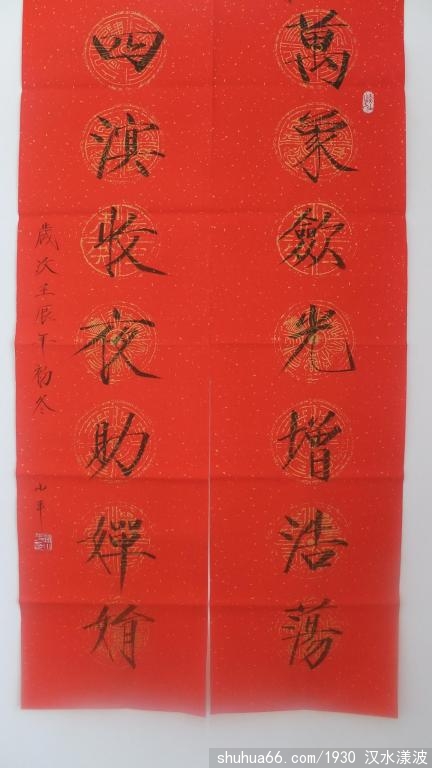 萬象斂光增浩蕩
四溟收夜助嬋娟
歲次壬辰年初冬
小平
shuhua66.com/1930 汉水漾波